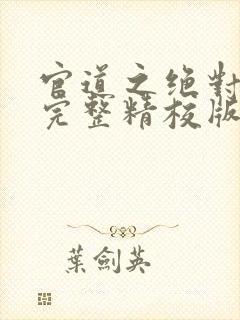 官道之绝對
完整精校版
葉劍英